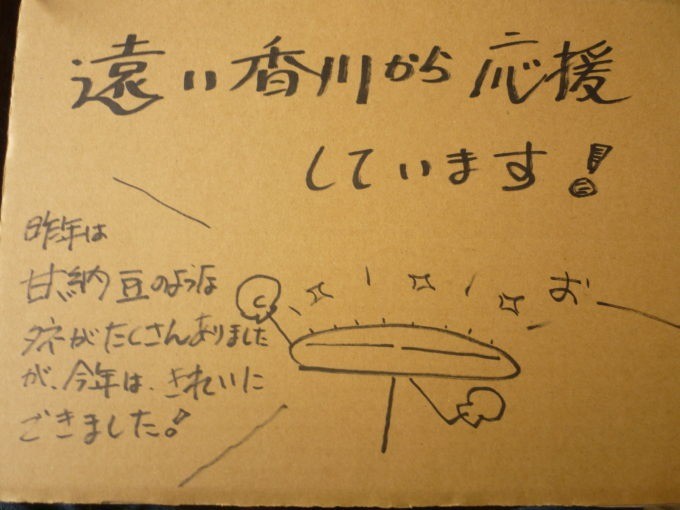 遠い香川から応援
しています!
昨年は
甘納豆のような
タネがたくさんありました
が、今年は、きれいに
できました。
おー